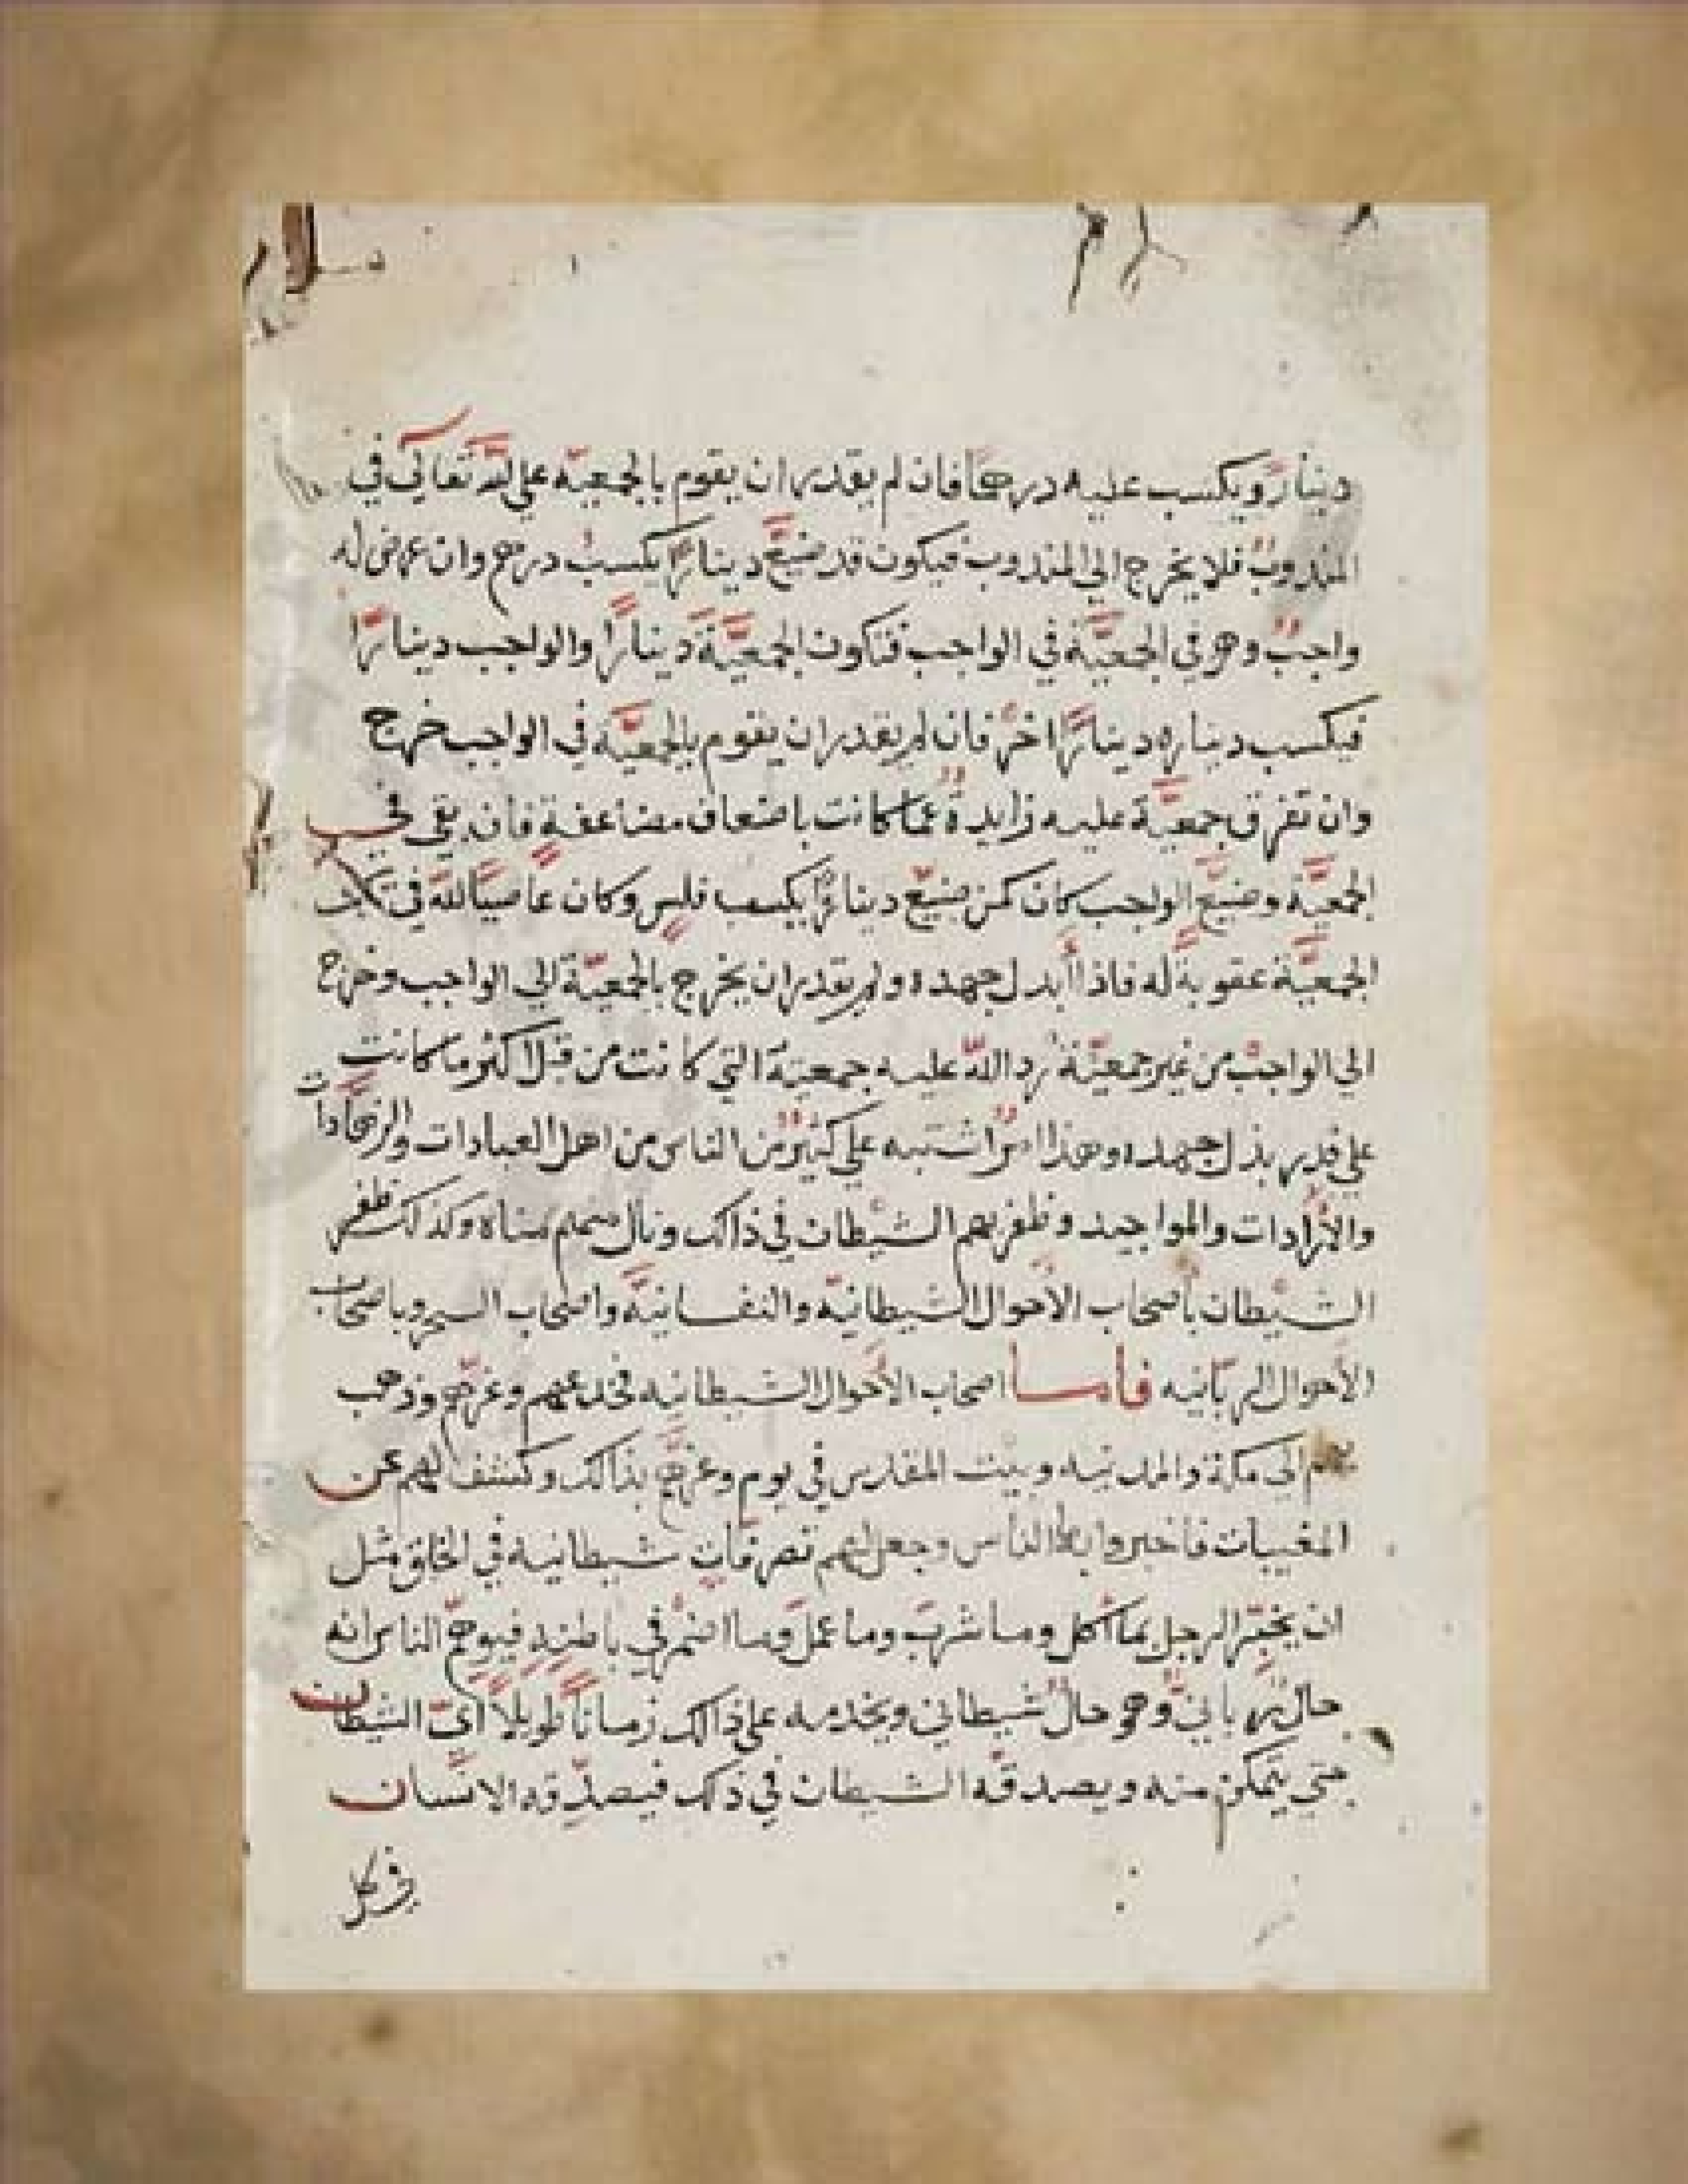 دينارً ويكسب عليه درهمًا فان لم يقدر ان يقوم بالجمعيّه علي اللّه تعالي في
المندوبْ فلا يخرج الي المندوب فيكون قد ضيّع دينارًا يكسبْ درهم وان عرض له
واجبٌ وهو في الجمعيّة في الواجب فتكون الجمعيَّةَ دينارًا والواجب دينارًا
فيكسب ديناره دينارًا اخرً فان لم يقدر ان يقوم بالجمعيَّة في الواجب خرج
وان تفرق جمعيَّة عليه زايدةٌ عما كانت باضعاف مضاعفةٍ فان بقي في
الجمعيَّة وضيَّع الواجب كان كمن ضيّع دينارًا يكسب فلسٍ وكان عاصيًا للّه في تلك
الجمعيَّة عقوبةً له فاذا أبدل جهده ولم يقدر ان يخرج بالجمعيّة الي الواجب وخرج
الي الواجبْ من غير جمعيَّة رد اللّه عليه جمعيته التي كانت من قبل اكثر ما كانت
علي قدر بذل جهده وهذا امرٌ اشتبه علي كثيرٌ من الناس من اهل العبادات والزهّادات
والأرادات والمواجيد وظفر بهم الشيْطان في ذالك ونال منهم مناه وكذلك ظفر
الشيْطان بأصحاب الأحوال الشيطانيّه والنفسانيَّه واصحاب السحر وباصحاب
الأحوال الربّانيه فأما اصحاب الأحوال الشيطانيه فخدعهم وغرّهم وذهب
بهم الي مكة والمدينه وبيْت المقدس في يوم وغرّهم بذالك وكشف لهم عن
المغيبات فأخبروا بها الناس وجعل لهم تصرفاتٍ شيطانيه في الخلق مثل
ان يخبرّ الرجل بما أكل وما شربَ وما عملَ وما اضمر في باطنهِ فيوهم الناس انه
حالٌ ربانيٌّ وهو حالٌ شيطاني ويخدمه علي ذالك زمانًا طويلًا ايّ الشيطان
حتي يتمكّن منه ويصدقه الشيطان في ذلك فيصدّقه الانسان
في كل